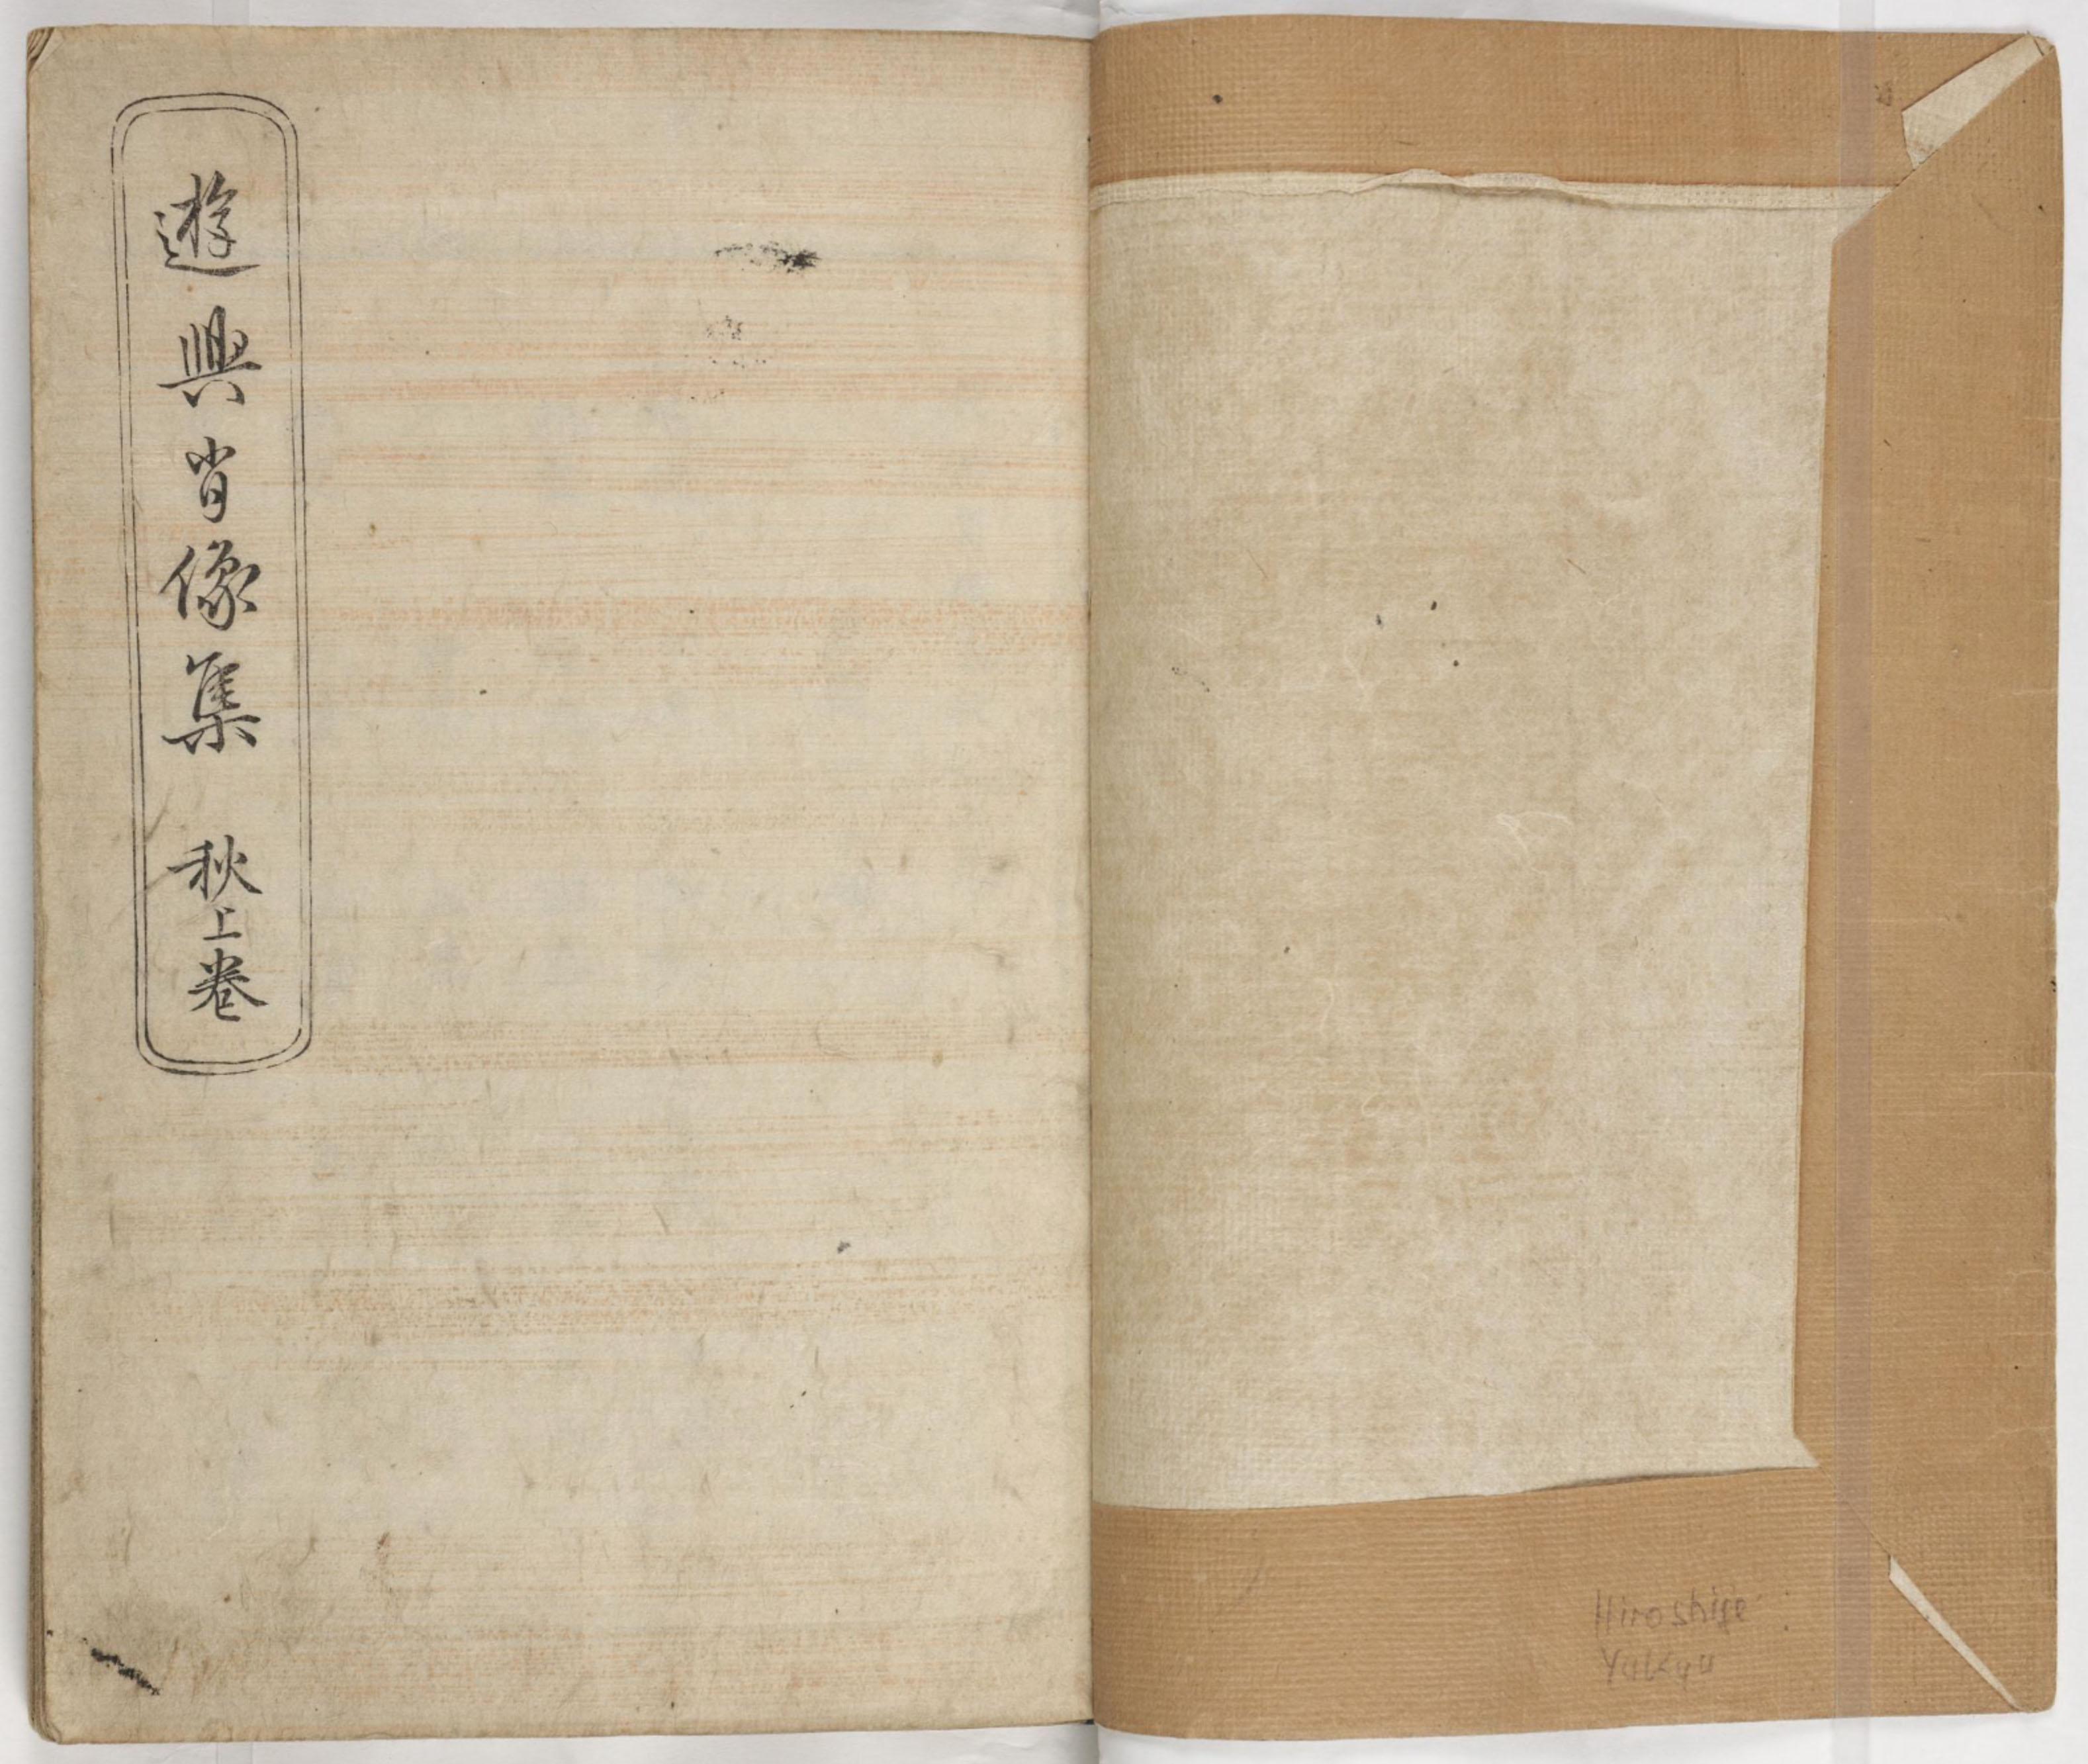 遊興肖像集 秋上巻
Hiroshige
Yukyo